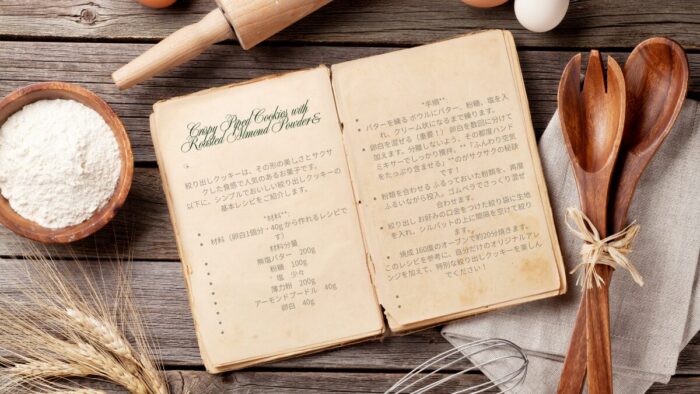 Crispy Piped Cookies with
Roasted Almond Powder&
絞り出しクッキーは、その形の美しさとサクサ
クした食感で人気のあるお菓子です。
以下に、シンプルでおいしい絞り出しクッキーの
基本レシピをご紹介します。
"材料**:
材料（卵白1個分・40gから作れるレシピで
す）
材料分量
無塩バター　200g
粉糖　100g
塩　少々
薄力粉　200g
アーモンドプードル　40g
卵白　40g
"手順**
バターを練る ボウルにバター、粉糖、塩を入
れ、クリーム状になるまで練ります。
卵白を混ぜる（重要！） 卵白を数回に分けて
加えます。分離しないよう、その都度ハンド
ミキサーでしっかり攪拌。**「ふんわり空気
をたっぷり含ませる」**のがサクサクの秘訣
です！
粉類を合わせる ふるっておいた粉類を、再度
ふるいながら投入。ゴムベラでさっくり混ぜ
合わせます。
絞り出し お好みの口金をつけた絞り袋に生地
を入れ、シルパットの上に間隔を空けて絞り
ます。
焼成 160度のオーブンで約20分焼きます。
このレシピを参考に、自分だけのオリジナルアレ
ンジを加えて、特別な絞り出しクッキーを楽しん
でください！